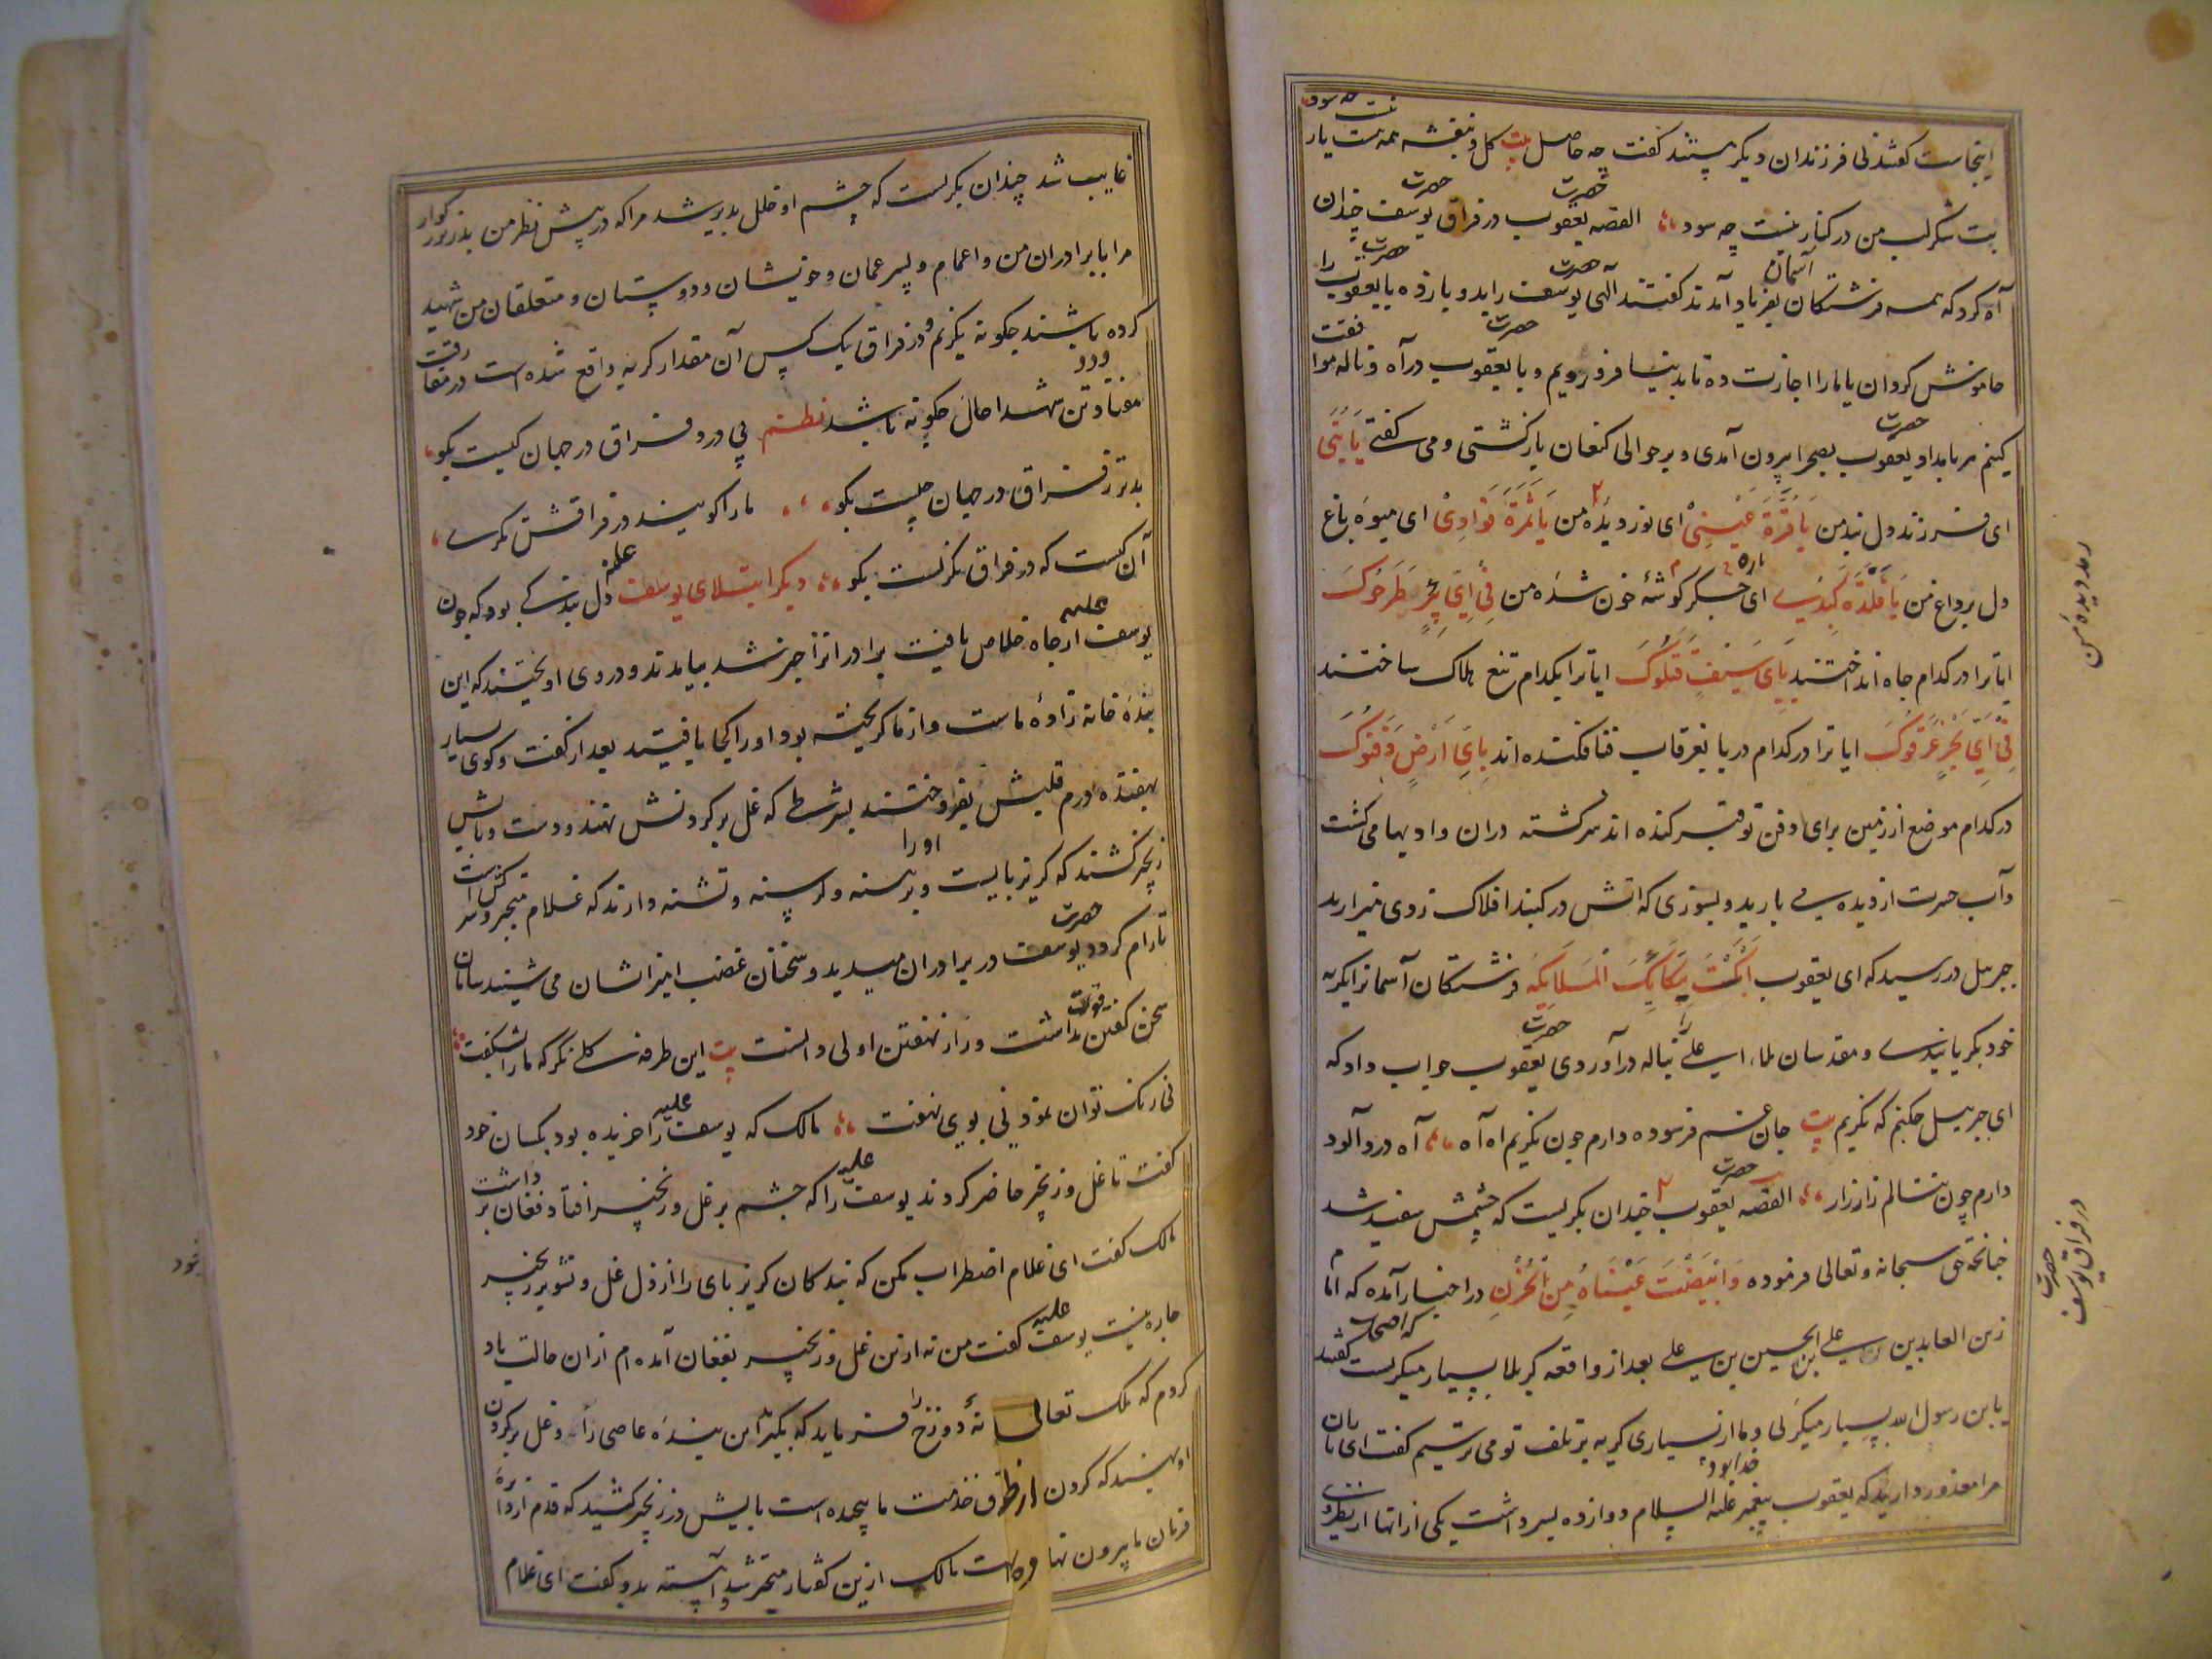 اینجاست گفتند نی فرزندان دیگر هستند گفت چه حاصل بیت گل و بنفشه همه هست یار نیست چه سود
بت شکر لب من در کنار نیست چه سود القصه حضرت یعقوب در فراق حضرت یوسف چندان
آه کرد که همه فرشتگان آسمان بفریاد آمدند گفتند الهی حضرت یوسف را بدو باز ده یا حضرت یعقوب را
خاموش گردان یا ما را اجازت ده تا بدنیا فرو رویم و با حضرت یعقوب در آه و ناله موافقت
کنیم هر بامداد حضرت یعقوب بصحرا بیرون آمدی و بر حوالی کنعان بازگشتی و می گفتی یا بنی
ای فرزند دلبند من یا قرة عینی ای نور دیده من یا ثمرة فوادی ای میوه باغ
دل پر داغ من یا فلذة کبدی ای جگر گوشه خون شده من فی ای بئر طرحوک
ایا ترا در کدام چاه انداختند بای سیف قتلوک ایا ترا بکدام تیغ هلاک ساختند
فی ای بحر غرقوک ایا ترا در کدام دریا بغرقاب فنا فکنده اند بای ارض دفنوک
در کدام موضع از زمین برای دفن تو قبر کنده اند سرگشته دران وادیها می گشت
و آب حسرت از دیده می بارید و بسوزی که آتش در گنبد افلاک زدی میزارید
جبرئیل در رسید که ای یعقوب ابکت ببکائک الملایکه فرشتگان آسمانرا بگریه
خود بگریانیدی و مقدسان ملاء اعلی را بناله در آوردی حضرت یعقوب جواب داد که
ای جبرئیل چکنم که نگریم بیت جان غم فرسوده دارم چون نگریم آه آه آه درد آلود
دارم چون ننالم زار زار القصه حضرت یعقوب چندان بگریست که چشمش سفید شد
چنانچه حق سبحانه و تعالی فرموده وابیضت عیناه من الحزن در اخبار آمده که امام
زین العابدین علی ابن الحسین بن علی بعد از واقعه کربلا بسیار میگریست که اصحاب گفتند
یا بن رسول الله بسیار میگریی و ما از بسیاری گریه بر تلف تو می ترسیم گفت ای یاران
مرا معذور دارید که یعقوب پیغمبر خدا بود علیه السلام دوازده پسر داشت یکی از آنها از نظر وی
در فراق حضرت یوسف
غایب شد چندان بگریست که چشم او خلل پذیر شد مرا که در پیش نظر من پدر بزرگوار
مرا با برادران من و اعمام و پسر عمان و خویشان و دوستان و متعلقان من شهید
کرده باشند چگونه نگریم و در فراق یک کس آن مقدار گریه واقع شده است در مفارقت
هفتاد و دو تن شهدا حال چگونه باشد نظم بی درد فراق در جهان کیست بگو
بدتر ز فراق در جهان چیست بگو ما را گویند در فراقش مگری
آن کیست که در فراق نگریست بگو دیگر ابتلای یوسف علیه دل بندگی بود که چون
یوسف علیه از چاه خلاص یافت برادرانرا خبر شد بیامدند و در وی آویختند که این
بنده خانه زاده ماست و از ما گریخته بود او را کجا یافتید بعد از گفت و گوی بسیار
بهفده درم قلبش بفروختند بشرطی که غل بر گردنش نهند و دست و پایش
زنجیر کشند که گریز پایست و او را برهنه و گرسنه و تشنه دارند که غلام متجبر و سرکش است
تا رام گردد حضرت یوسف در برادران میدید و سخنان غضب آمیز ایشان می شنید سامان
سخن گفتن قوت نداشت و راز نهفتن اولی دانست بیت این طرفه گلی نگر که ما را بشکفت
نی رنگ توان نمود نی بوی نهفت مالک که یوسف علیه را خریده بود بکسان خود
گفت تا غل و زنجیر حاضر کردند یوسف علیه را که چشم بر غل و زنجیر افتاد فغان بر داشت
مالک گفت ای غلام اضطراب مکن که بندگان گریز پای را از ذل غل و تشویر زنجیر
چاره نیست یوسف علیه گفت من نه ازین غل و زنجیر بفغان آمده ام ازان حالت یاد
کردم که ملک تعالی دوزخ را فرماید که بگیر این بنده عاصی را و غل بر گردن
او نهید که گردن از طوق خدمت ما پیچیده است پایش در زنجیر کشید که قدم از دایره
فرمان ما بیرون نهاده است مالک ازین گفتار متحیر شد و آهسته بدو گفت ای غلام